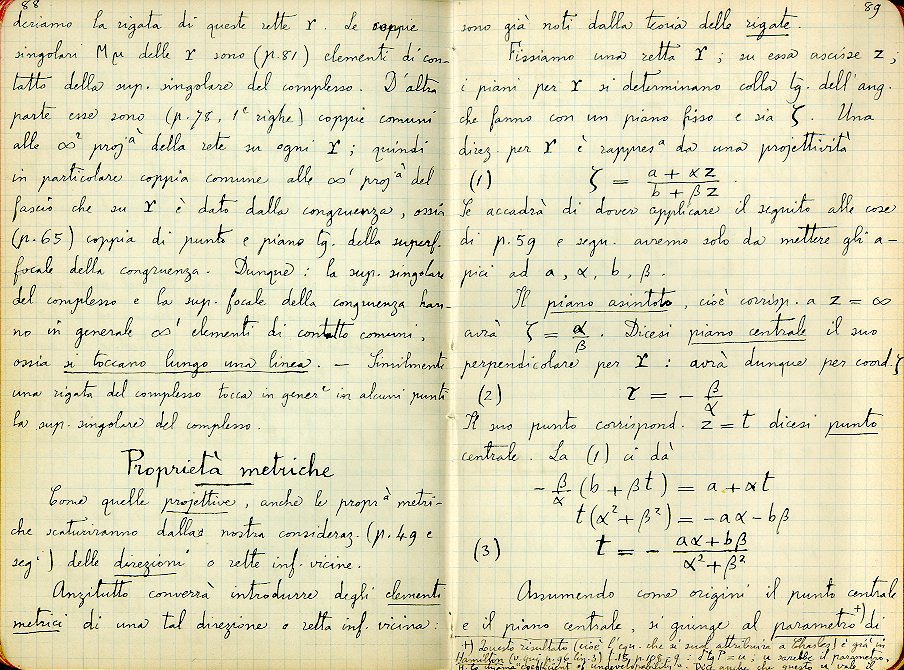 88
deriamo la rigata di queste rette r. Le coppie
singolari Mμ delle r sono (p. 81) elementi di con-
tatto della sup. singolare del complesso. D'altra
parte esse sono (p. 78, 1ᵉ righe) coppie comuni
alle ∞² projᵃ̀ della rete su ogni r; quindi
in particolare coppia comune alle ∞¹ projᵃ̀ del
fascio che su r è dato dalla congruenza, ossia
(p. 65) coppia di punto e piano tg. della superf.
focale della congruenza. Dunque: la sup. singolare
del complesso e la sup. focale della congruenza han-
no in generale ∞¹ elementi di contatto comuni,
ossia si toccano lungo una linea. — Similmente
una rigata del complesso tocca in generᵉ in alcuni punti
la sup. singolare del complesso.
Proprietà metriche
Come quelle projettive, anche le propʳᵃ̀ metri-
che scaturiranno dalla nostra consideraz. (p. 49 e
segⁱ) delle direzioni o rette inf. vicine.
Anzitutto converrà introdurre degli elementi
metrici di una tal direzione o retta inf. vicina:
89
sono già noti dalla teoria delle rigate.
Fissiamo una retta r; su essa ascisse z;
i piani per r si determinano colla tg. dell'ang.
che fanno con un piano fisso e sia ζ. Una
direz. per r è rappresᵃ da una projettività
(1) ζ = (a + αz)/(b + βz).
Se accadrà di dover applicare il seguito alle cose
di p. 59 e segu. avremo solo da mettere gli a-
pici ad a, α, b, β.
Il piano asintoto, cioè corrisp. a z = ∞
avrà ζ = α/β. Dicesi piano centrale il suo
perpendicolare per r: avrà dunque per coord. ζ
(2) τ = − β/α
Il suo punto corrispond. z = t dicesi punto
centrale. La (1) ci dà
− β/α (b + βt) = a + αt
t(α² + β²) = − aα − bβ
(3) t = − (aα + bβ)/(α² + β²)
Assumendo come origini il punto centrale
e il piano centrale, si giunge al parametro⁺⁾ di
+) Questo risultato (cioè l'equ. che si suol attribuire a Chasles) è già in
Hamilton